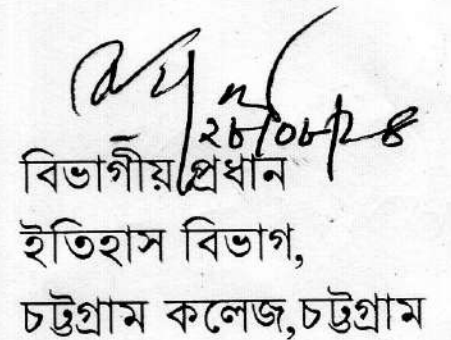 ২৮/০৮/২৪
বিভাগীয় প্রধান
ইতিহাস বিভাগ,
চট্টগ্রাম কলেজ,চট্টগ্রাম